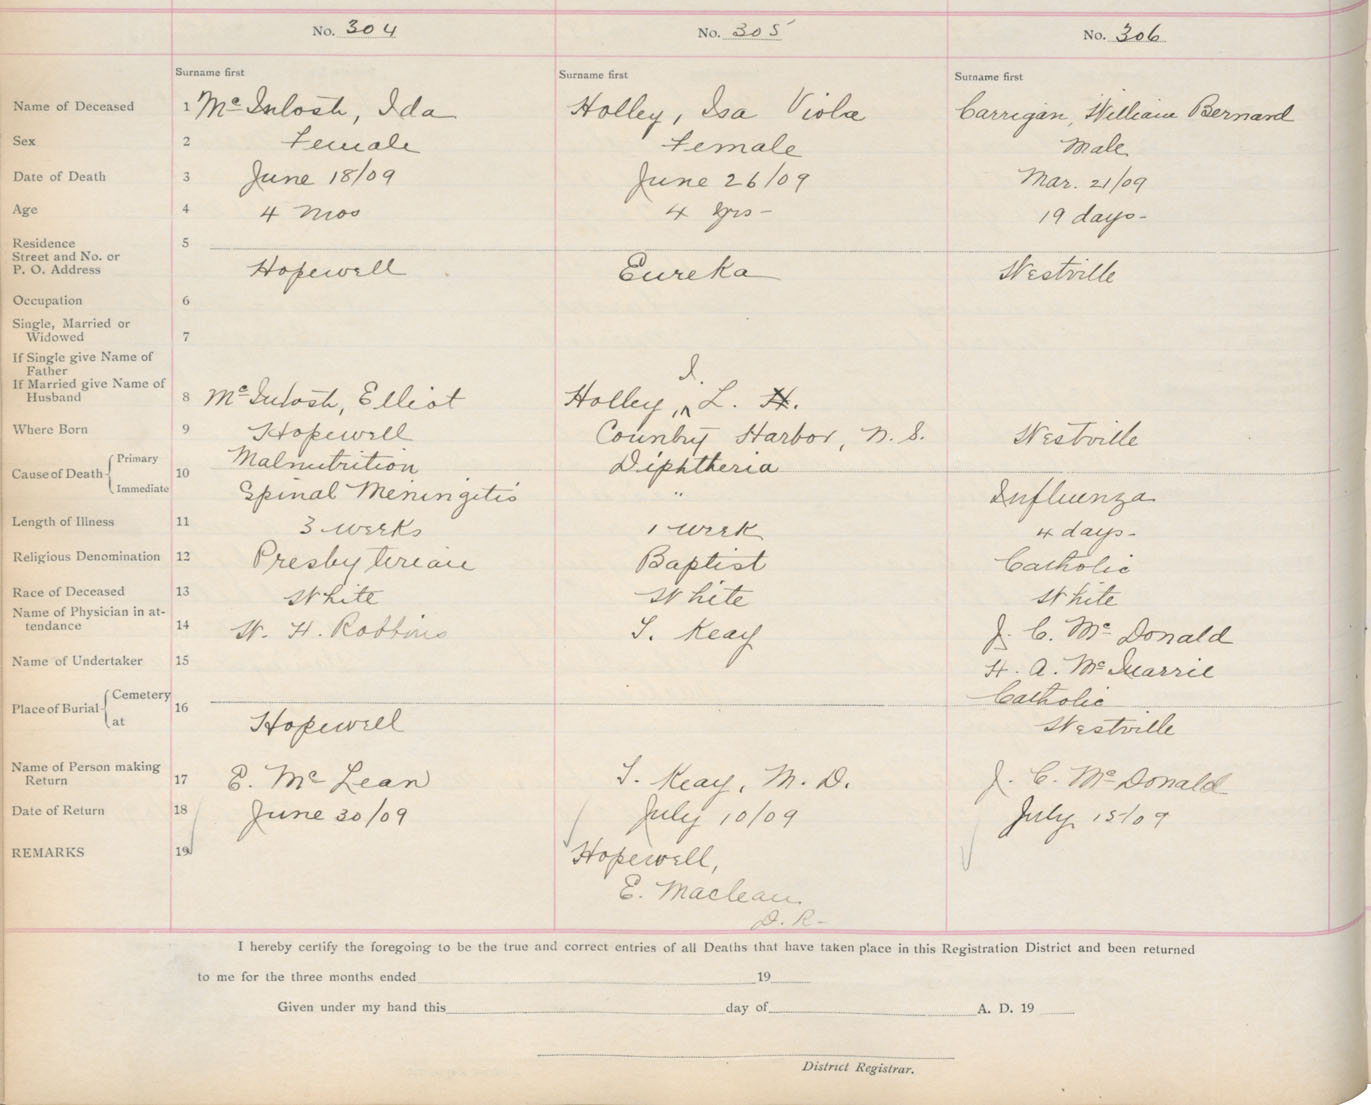 No. 304 No. 305 No. 306
Surname first Surname first Surname first
Name of Deceased 1 McIntosh, Ida Holley, Isa Viola Carrigan, William Bernard
Sex 2 Female Female Male
Date of Death 3 June 18/09 June 26/09 Mar. 21/09
Age 4 4 mos 4 yrs - 19 days -
Residence 5
Street and No. or
P. O. Address Hopewell Eureka Westville
Occupation 6
Single, Married or
Widowed 7
If Single give Name of
Father
If Married give Name of I.
Husband 8 McIntosh, Elliot Holley, L. H.
Where Born 9 Hopewell Country Harbor, N. S. Westville
Cause of Death Primary 10 Malnutrition Diphtheria
Immediate Spinal Meningitis " Influenza
Length of Illness 11 3 weeks 1 week 4 days -
Religious Denomination 12 Presbyterian Baptist Catholic
Race of Deceased 13 White White White
Name of Physician in at-
tendance 14 W. H. Robbins T. Keay J. C. McDonald
Name of Undertaker 15 H. A. McQuarrie
Place of Burial Cemetery 16 Catholic
at Hopewell Westville
Name of Person making
Return 17 E. McLean T. Keay, M. D. J. C. McDonald
Date of Return 18 June 30/09 July 10/09 July 15/09
REMARKS 19 Hopewell,
E. Maclean
D. R-
I hereby certify the foregoing to be the true and correct entries of all Deaths that have taken place in this Registration District and been returned
to me for the three months ended 19
Given under my hand this day of A. D. 19
District Registrar.